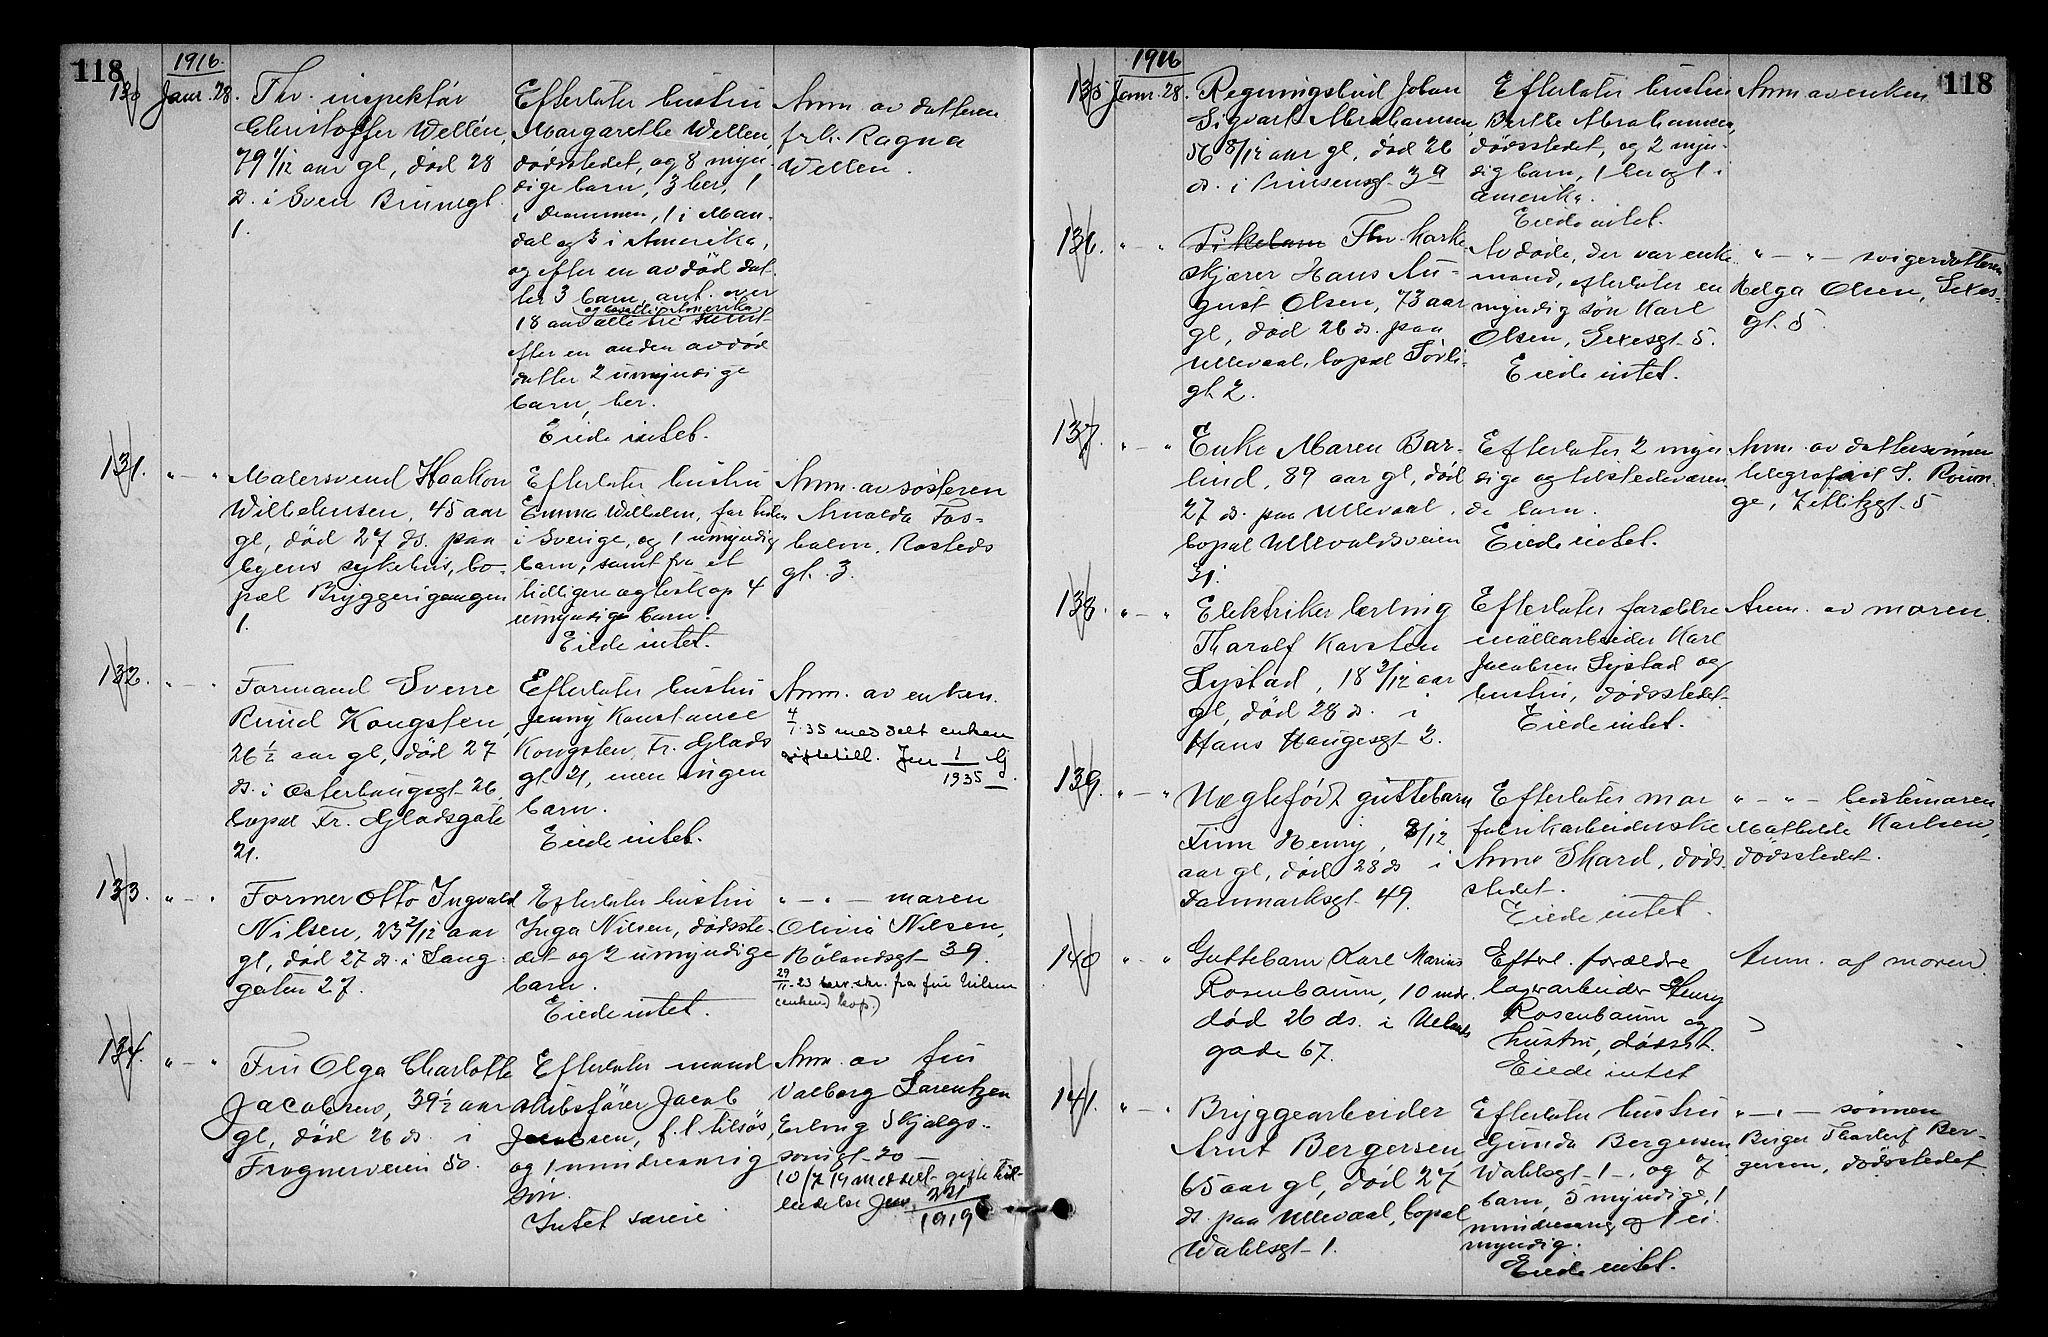 118
1916.
130
Janr. 28.
Fhv. inspektør
Christoffer Wellén,
79 1/12 aar gl, död 28
ds. i Sven Brunsgt
1.
Efterlater hustru
Margarethe Wellen,
dödsstedet, og 8 myn-
dige barn, 3 her, 1
i Drammen, 1 i Man-
dal og 3 i Amerika,
og efter en avdöd dat-
ter 3 barn, ant. over
og bosatte i Amerika
18 aar alle tre samt
efter en anden avdöd
datter 2 umyndige
barn, her.
Eiede intet.
Anm. av datteren
frk. Ragna
Wellen.
131.
" — "
Malersvend Haakon
Wilhelmsen, 45 aar
gl, död 27 ds. paa
byens sykehus, bo-
pæl Bryggerigangen
1.
Efterlater hustru
Emma Wilhelm, for tiden
i Sverige, og 1 umyndig
barn, samt fra et
tidligere egteskap 4
umyndige barn.
Eiede intet.
Anm. av sösteren
Arnolda Fos-
holm, Rosteds
gt. 3.
132.
" — "
Formand Sverre
Ruud Kongsten,
26 1/2 aar gl, död 27
ds. i Osterhaugsgt 26,
bopæl Fr. Gladsgate
21.
Efterlater hustru
Jenny Konstanse
Kongsten, Fr. Glads
gt. 21, men ingen
barn.
Eiede intet.
Anm. av enken.
4/1.35 meddelt enken
giftetill. Jnr 1/1935 G.
133.
" — "
Former Otto Ingvald
Nilsen, 23 2/12 aar
gl, död 27 ds. i Lang-
gaten 27.
Efterlater hustru
Inga Nilsen, dödsste-
det og 2 umyndige
barn.
Eiede intet.
" — " — moren
Olivia Nilsen,
Rölandsgt 39.
29/11-23 fra fru Nilsen
(enken) kop.)
134.
" — "
Fru Olga Charlotte
Jacobsen, 39 1/2 aar
gl, död 26 ds. i
Frognerveien 50.
Efterlater mand
skibsförer Jacob
Jacobsen, f. t. tilsös,
og 1 mindreaarig
sön.
Intet særeie.
Anm. av fru
Valborg Larentzen
Erling Skjalgs-
sonsgt. 20 —
10/7 19 meddelt gifte till-
ladelse Jnr. 321/1919
118
1916
135
Janr. 28.
Regningsbud Johan
Sigvart Abrahamsen,
56 8/12 aar gl, död 26
ds. i Prinsensgt 3a
Efterlater hustru
Berthe Abrahamsen,
dödsstedet, og 2 myn-
dig barn, 1 her og 1 i
Amerika.
Eiede intet.
Anm av enken
136.
" — "
Pikebarn Fhv. kork-
skjærer Hans Au-
gust Olsen, 73 aar
gl, död 26 ds. paa
Ullevaal, bopæl Törti-
gt 2.
Avdöde, der var enke-
mand, efterlater en
myndig sön Karl
Olsen, Sexesgt 5.
Eiede intet.
" — " — svigerdatteren
Helga Olsen, Sexes-
gt. 5.
137.
" — "
Enke Maren Bar-
lind, 89 aar gl, död
27 ds. paa Ullevaal,
bopæl Ullevoldsveien
31.
Efterlater 2 myn
dige og tilstedeværen
de barn.
Eiede intet.
Anm. av dattersönnen
telegrafist S. Rönn-
ge, Zetlitzgt. 5
138.
" — "
Elektriker lærling
Tharalf Karsten
Systad, 18 3/12 aar
gl, död 28 ds. i
Hans Haugesgt 2.
Efterlater forældre
möllearbeider Karl
Jacobsen Systad og
hustru, dödsstedet.
Eiede intet.
Anm. av moren.
139.
" — "
Uægteföd guttebarn
Finn Henry, 8/12
aar gl, död 28 ds i
Danmarksgt 49.
Efterlater mor
fabrikarbeiderske
Anna Skard, döds-
stedet.
Eiede intet.
" — " — bestemoren
Mathilde Karlsen,
dödsstedet.
140
" — "
Guttebarn Karl Marius
Rosenbaum, 10 mdr.
död 26 ds. i Uelands
gade 67.
Efterl. forældre
lagerarbeider Henry
Rosenbaum og
hustru, dødsst.
Eiede intet
Anm. af moren.
141.
" — "
Bryggearbeider
Arnt Bergersen,
65 aar gl, död 27
ds. paa Ullevaal, bopæl
Wahlsgt 1.
Efterlater hustru
Gunda Bergersen
Wahlsgt 1 -, og 7
barn, 5 myndige, 1
mindreaarig og 1 ei
myndig.
Eiede intet.
" — " — sönnen
Birger Thorleif Ber-
gersen, dödsstedet